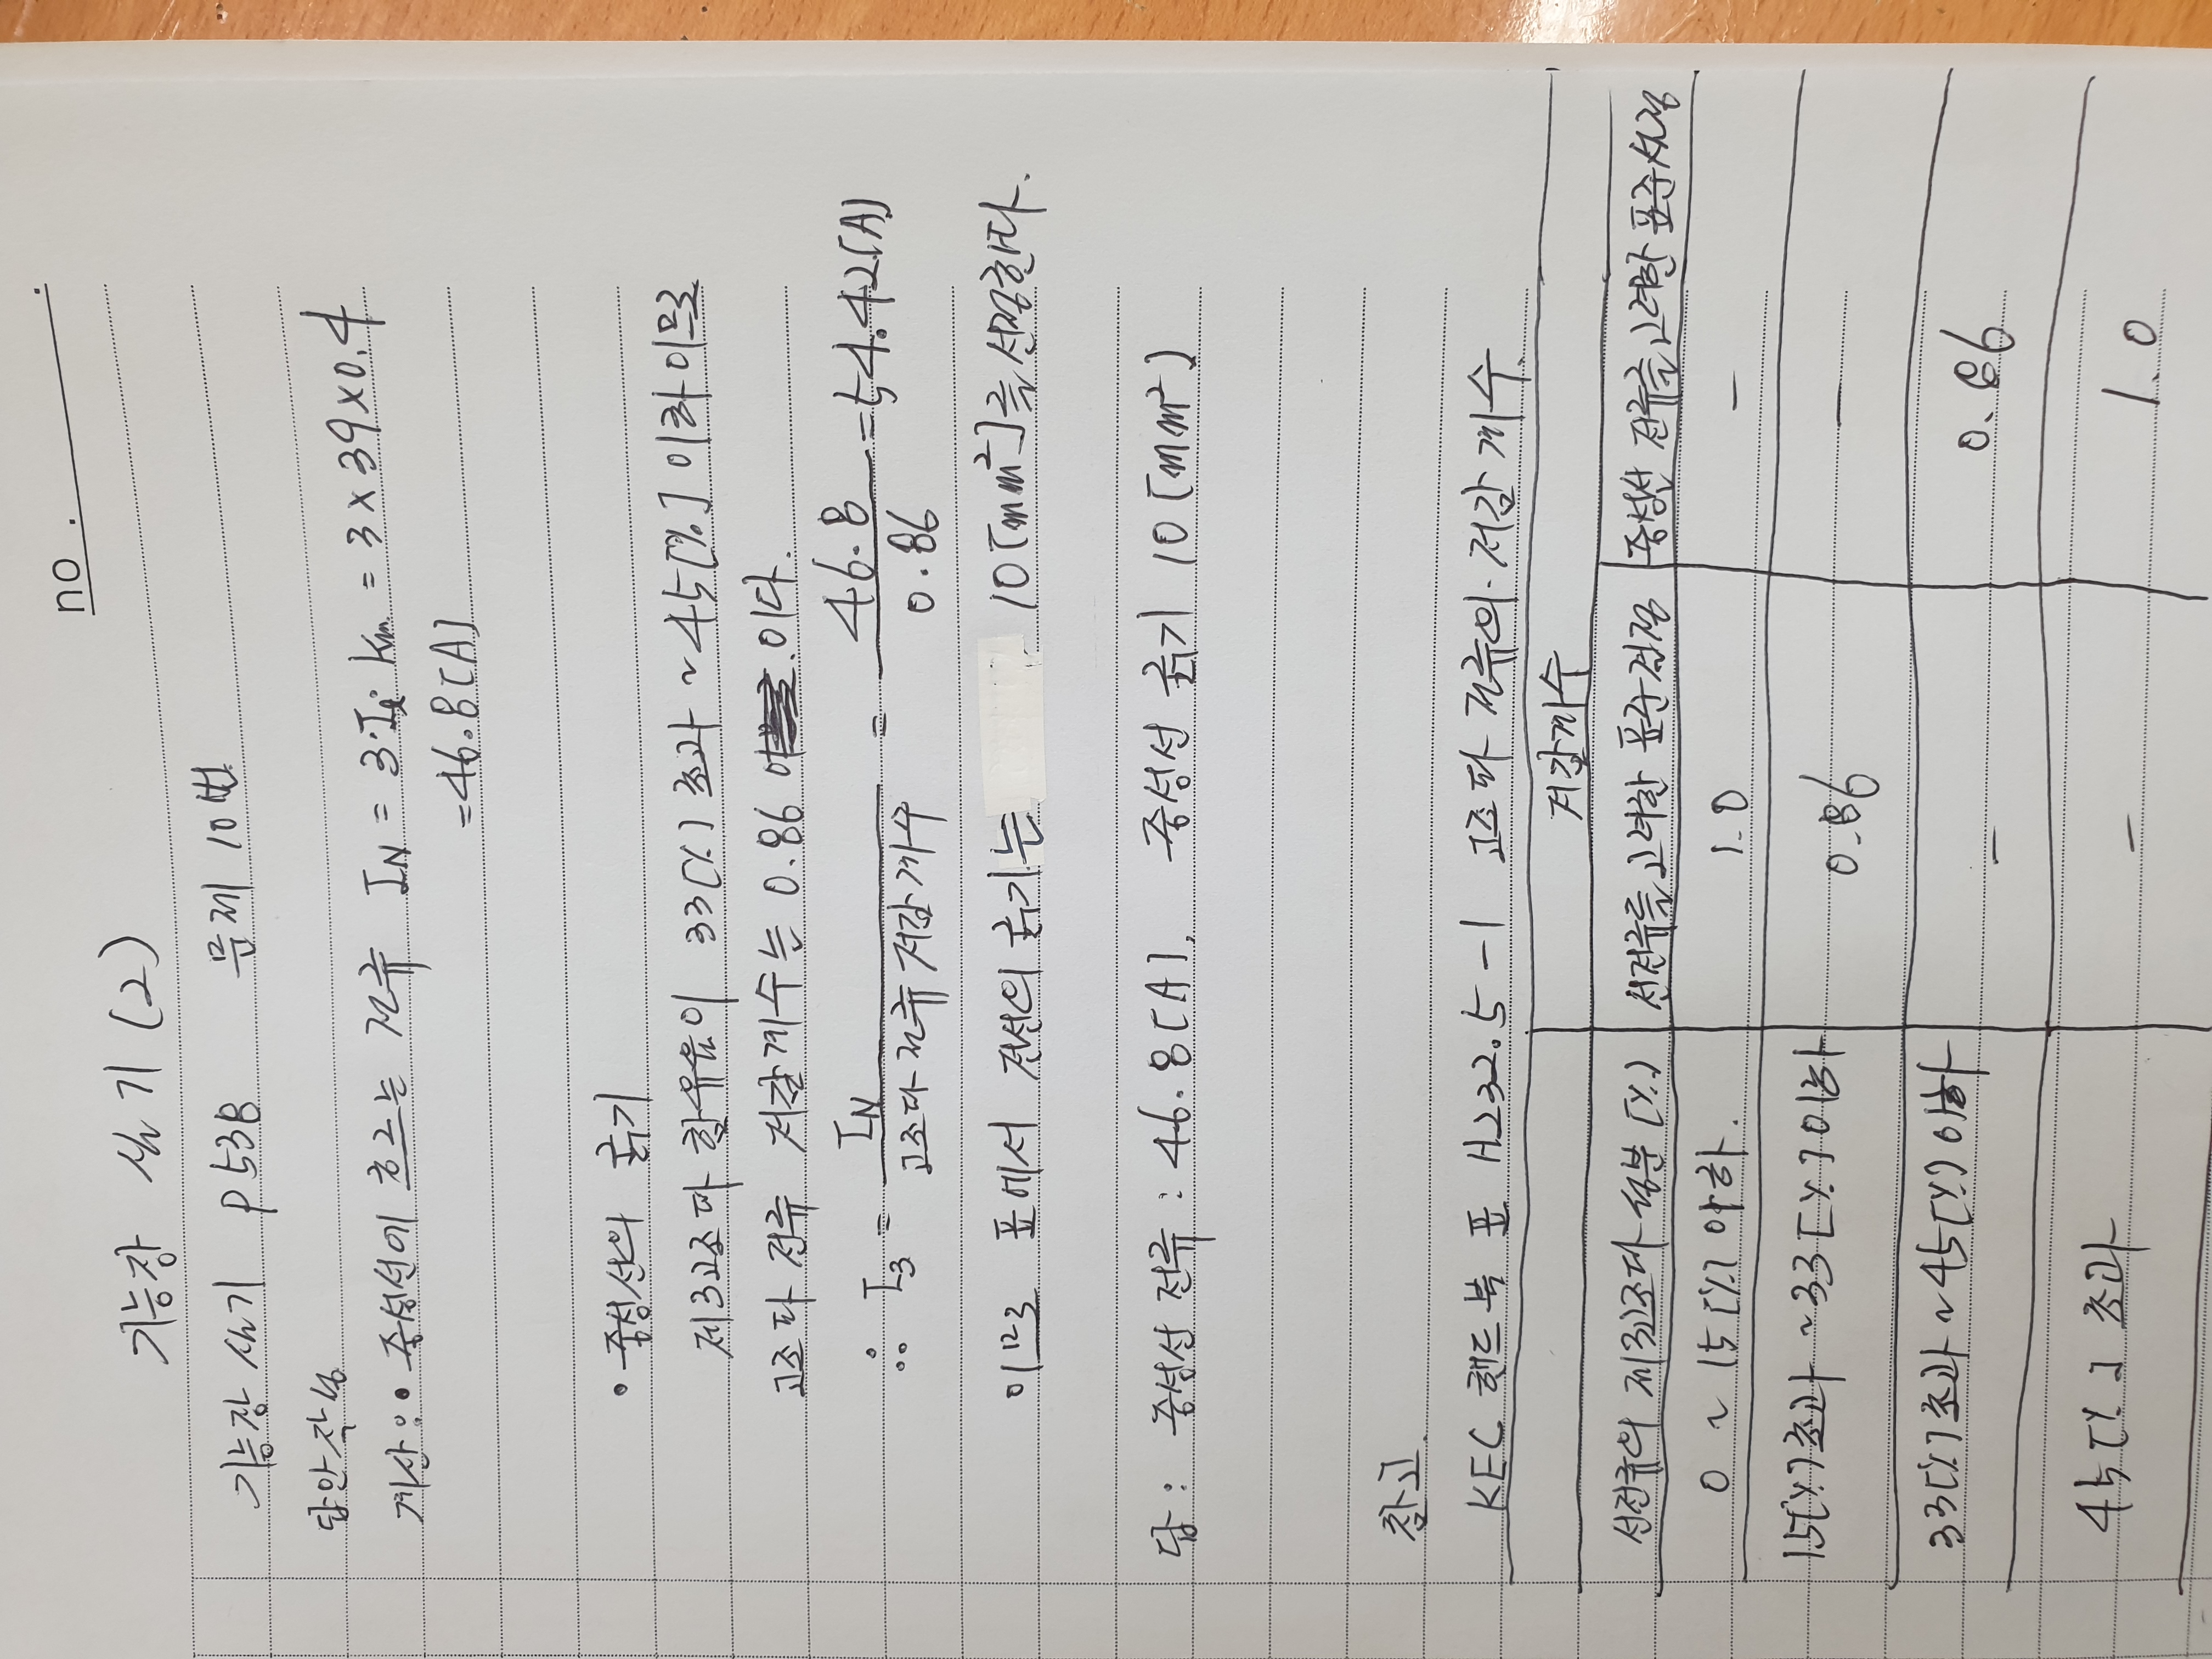 no .
기능장 실기 (2)
기능장 실기 P538 문제 10번
답안작성
계산 : • 중성선에 흐르는 전류 I_N = 3·I_ℓ· Km = 3 × 39 × 0.4
= 46.8 [A]
• 중성선의 굵기
제3고조파 함유율이 33[%] 초과 ~ 45[%] 이하 이므로
고조파 전류 저감계수는 0.86 이다.
∴ I₃ = I_N / 고조파 전류 저감 계수 = 46.8 / 0.86 = 54.42 [A]
이므로 표에서 전선의 굵기는 10 [mm²]를 선정한다.
답 : 중성선 전류 : 46.8 [A], 중성선 굵기 10 [mm²]
참고.
KEC 핸드북 표 H232.5-1 고조파 전류의 저감 계수.
저감계수
선전류의 제3고조파 성분 [%] 선전류를 고려한 표준결정 중성선 전류를 고려한 표준결정
0 ~ 15 [%] 이하. 1.0 —
15[%] 초과 ~ 33 [%] 이하 0.86 —
33[%] 초과 ~ 45[%] 이하 — 0.86
45[%] 초과 — 1.0